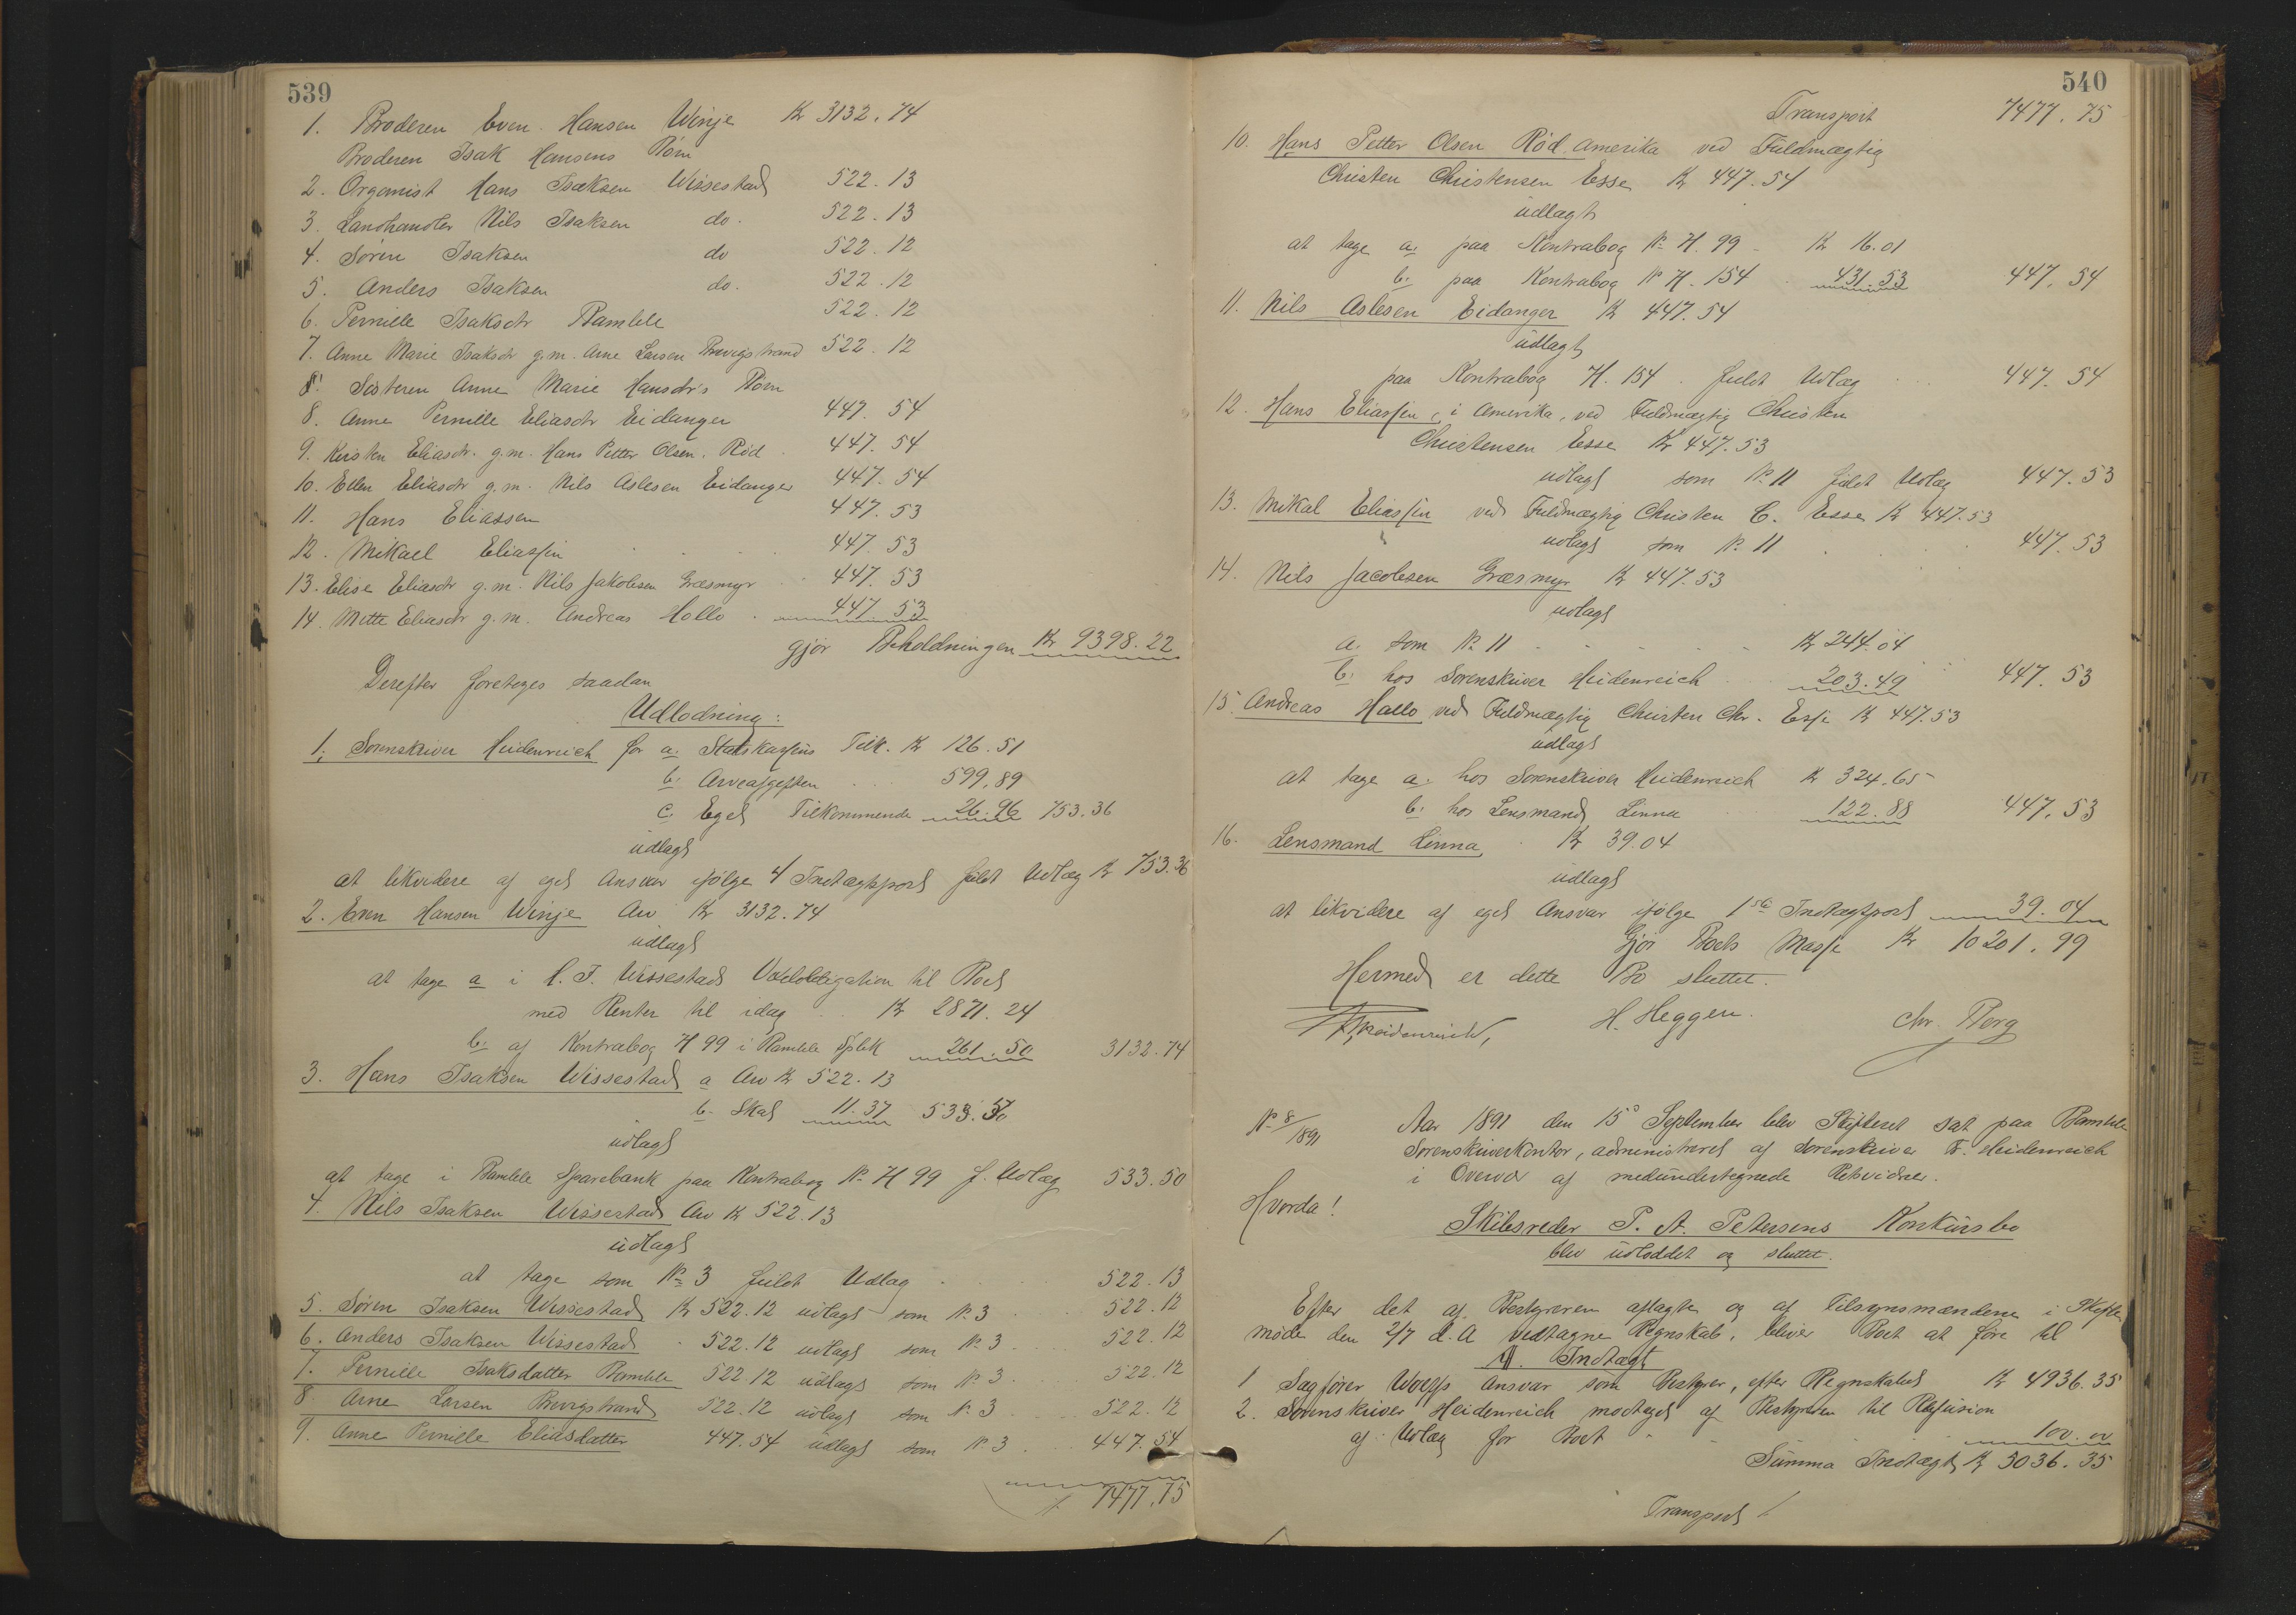 539
1. Broderen Even Hansen Winje Kr 3132.74
Broderen Isak Hansens Børn
2. Organist Hans Isaksen Wissestad 522.13
3. Landhandler Nils Isaksen do. 522.13
4. Søren Isaksen do 522.12
5. Anders Isaksen do. 522.12
6. Pernille Isaksdtr Bamble 522.12
7. Anne Marie Isaksdr g.m. Arne Larsen Brevigstrand 522.12
8! Søsteren Anne Marie Hansdtr's Børn
8. Anne Pernille Eliasdtr Eidanger 447.54
9. Kirsten Eliasdtr. g.m. Hans Petter Olsen. Rød 447.54
10. Ellen Eliasdtr g.m. Nils Aslesen Eidanger 447.54
11. Hans Eliassen 447.53
12. Mikael Eliassen 447.53
13. Elise Eliasdtr g.m. Nils Jakobsen Græsmyr 447.53
14. Mette Eliasdtr g.m. Andreas Hollo 447.53
gjør Beholdningen Kr 9398.22
Derefter foretoges saadan
Udlodning:
1. Sorenskriver Heidenreich for a. Statskassens Tilk. Kr 126.51
b. Arveafgiften 599.89
c. Eget Tilkommende 26.96 753.36
udlagt
at likvidere af eget Ansvar ifølge 4 Indtægtspost fuldt Udlæg Kr 753.36
2. Even Hansen Winje Arv Kr 3132.74
udlagt
at tage a i I. Wissestads Obligation til Boet
med Renter til idag Kr 2871.24
b. af Kontrabog H 99 i Bamble Spbk 261.50 3132.74
3. Hans Isaksen Wissestad a Arv Kr 522.13
b. Skat 11.37 533.50
udlagt
at tage i Bamble Sparebank paa Kontrabog No H 99 f. Udlæg 533.50
4. Nils Isaksen Wissestad Arv Kr 522.13
udlagt
at tage som No 3 fuldt Udlæg 522.13
5. Søren Isaksen Wissestad Kr 522.12 udlagt som No 3 522.12
6. Anders Isaksen Wissestad 522.12 udlagt som No 3 522.12
7. Pernille Isaksdatter Bamble 522.12 udlagt som No 3 522.12
8 Arne Larsen Brevigstrand 522.12 udlagt som No 3 522.12
9. Anne Pernille Eliasdatter 447.54 udlagt som No 3 447.54
7477.75
540
Transport 7477.75
10. Hans Petter Olsen Rød. Amerika ved Fuldmægtig
Christen Christensen Esse Kr 447.54
udlagt
at tage a. paa Kontrabog No H. 99 - Kr 16.01
b. paa Kontrabog No H. 154 431.53 447.54
11. Nils Aslesen Eidanger Kr 447.54
udlagt
paa Kontrabog H. 154. fuldt Udlæg 447.54
12. Hans Eliassen, i Amerika, ved Fuldmægtig Christen
Christensen Esse Kr 447.53
udlagt som No 11 fuldt Udlæg 447.53
13. Mikal Eliassen ved Fuldmægtig Christen C. Esse Kr 447.53
udlagt som No 11 447.53
14. Nils Jacobsen Græsmyr Kr 447.53
udlagt
a. som No 11 Kr 244.04
b. hos Sorenskriver Heidenreich 203.49 447.53
15. Andreas Hallo ved Fuldmægtig Christen Chr. Esse Kr 447.53
udlagt
at tage a. hos Sorenskriver Heidenreich Kr 324.65
b. hos Lensmand Linna 122.88 447.53
16. Lensmand Linna Kr 39.04
udlagt
at likvidere af eget Ansvar ifølge 1ste Indtægtspost 39.04
Gjør Boets Masse Kr 10201.99
Hermed er dette Bo sluttet.
Heidenreich, H. Heggen. Chr. Berg
No 8/1891 Aar 1891 den 15de September blev Skifteret sat paa Bamble
Sorenskriverkontor, administreret af Sorenskriver F. Heidenreich
i Overvær af medundertegnede Retsvidner.
Hvorda!
Skibsreder P. A. Petersens Konkursbo
blev udloddet og sluttet.
Efter det af Bestyreren aflagte og af Tilsynsmændene i Skifte
møde den 2/7 d.A vedtagne Regnskab, bliver Boet at føre til
Indtægt
1 Sagfører Ansvar som Bestyrer, efter Regnskabet Kr 4936.35
2. Sorenskriver Heidenreich modtaget af Bestyreren til Refusion
af Udlæg for Boet 100.00
Summa Indtægt Kr 5036.35
Transport